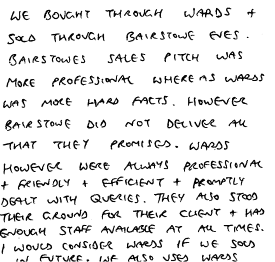 WE BOUGHT THROUGH WARDS +
SOLD THROUGH BAIRSTOWE EVES.
BAIRSTOWES SALES PITCH WAS
MORE PROFESSIONAL WHEREAS WARDS
WAS MORE HARD FACTS. HOWEVER
BAIRSTOWE DID NOT DELIVER ALL
THAT THEY PROMISED. WARDS
HOWEVER WERE ALWAYS PROFESSIONAL
+ FRIENDLY + EFFICIENT + PROMPTLY
DEALT WITH QUERIES. THEY ALSO STOOD
THEIR GROUND FOR THEIR CLIENT + HAS
ENOUGH STAFF AVAILABLE AT ALL TIMES.
I WOULD CONSIDER WARDS IF WE SOLD
IN FUTURE. WE ALSO USED WARDS